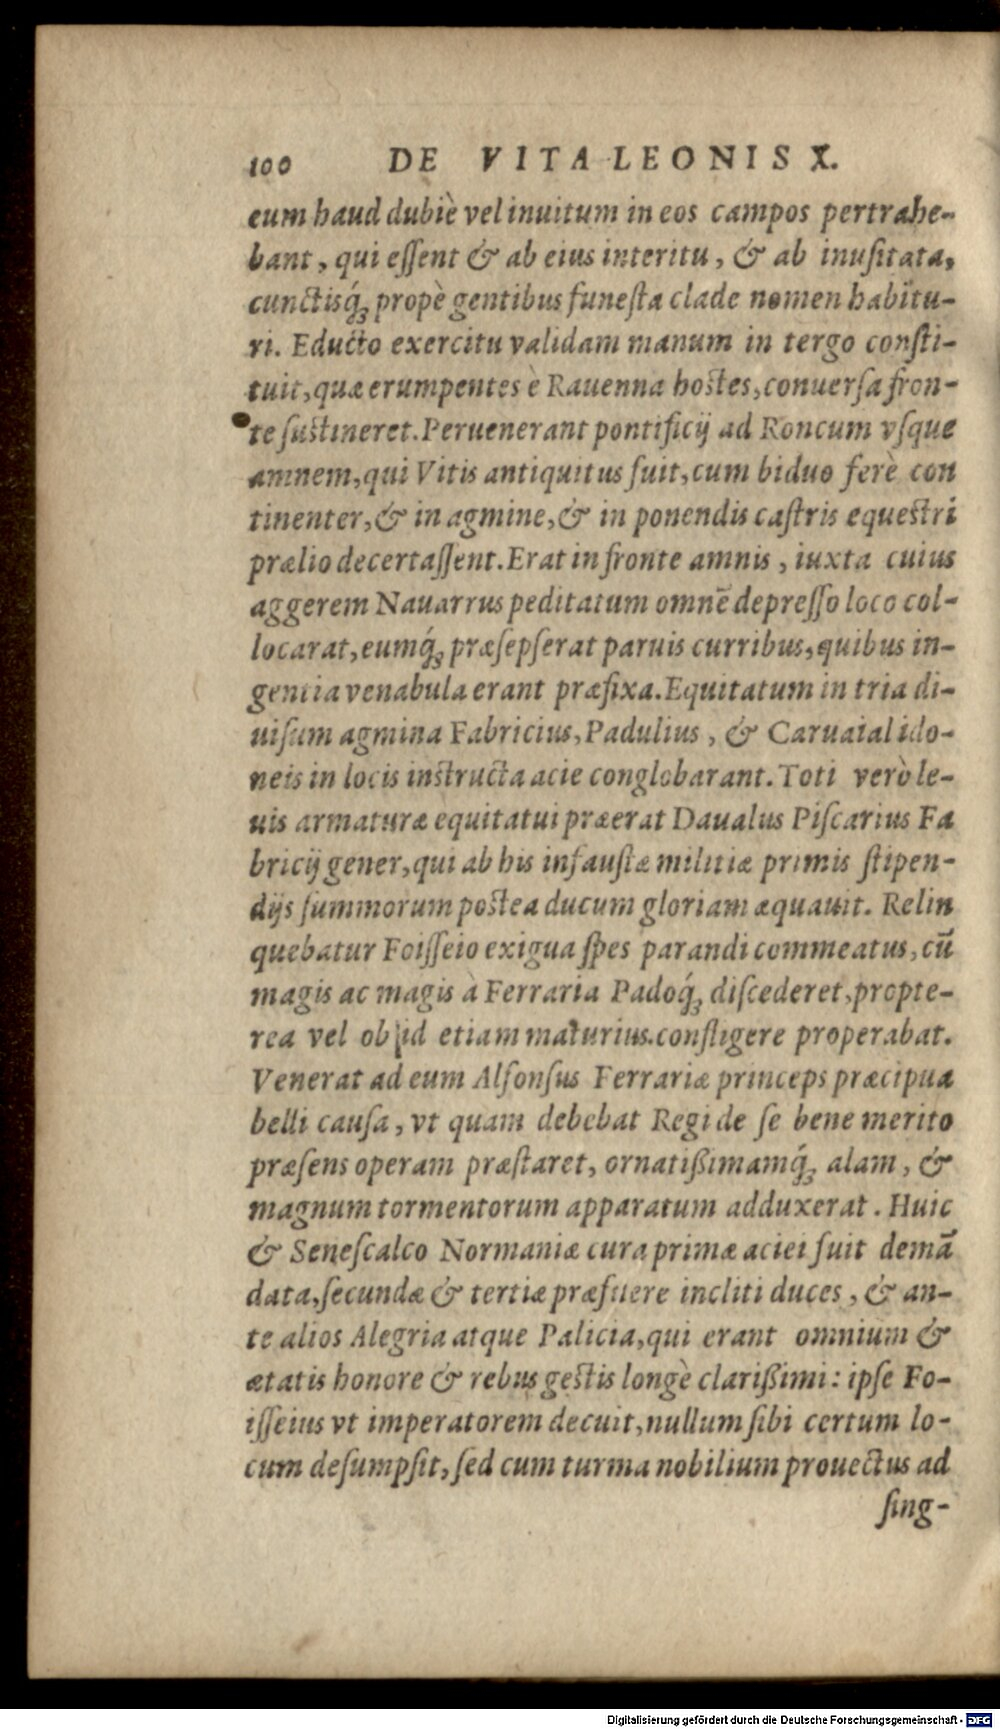 100 DE VITA LEONIS X.
eum haud dubiè vel inuitum in eos campos pertrahe-
bant, qui eſſent & ab eius interitu, & ab inuſitata,
cunctisq́ꝫ propè gentibus funeſta clade nomen habitu-
ri. Educto exercitu validam manum in tergo conſti-
tuit, quæ erumpentes è Rauenna hostes, conuerſa fron-
te ſustineret. Peruenerant pontificij ad Roncum vſque
amnem, qui Vitis antiquitus fuit, cum biduo ferè con
tinenter, & in agmine, & in ponendis caſtris equestri
prælio decertaſſent. Erat in fronte amnis, iuxta cuius
aggerem Nauarrus peditatum omnē depreſſo loco col-
locarat, eumq́ꝫ præſepſerat paruis curribus, quibus in-
gentia venabula erant præfixa. Equitatum in tria di-
uiſum agmina Fabricius, Padulius, & Caruaial ido-
neis in locis instructa acie conglobarant. Toti verò le-
uis armaturæ equitatui præerat Daualus Piſcarius Fa
bricij gener, qui ab his infauſtæ militiæ primis ſtipen-
dijs ſummorum postea ducum gloriam æquauit. Relin
quebatur Foiſſeio exigua ſpes parandi commeatus, cū
magis ac magis à Ferraria Padoq́ꝫ diſcederet, propte-
rea vel ob id etiam maturius confligere properabat.
Venerat ad eum Alfonſus Ferrariæ princeps præcipua
belli cauſa, vt quam debebat Regi de ſe bene merito
præſens operam præſtaret, ornatißimamq́ꝫ alam, &
magnum tormentorum apparatum adduxerat. Huic
& Seneſcalco Normaniæ cura primæ aciei fuit demā
data, ſecundæ & tertiæ præfuere incliti duces, & an-
te alios Alegria atque Palicia, qui erant omnium &
ætatis honore & rebus gestis longè clarißimi: ipſe Fo-
iſſeius vt imperatorem decuit, nullum ſibi certum lo-
cum deſumpſit, ſed cum turma nobilium prouectus ad
ſing-
Digitalisierung gefördert durch die Deutsche Forschungsgemeinschaft - DFG